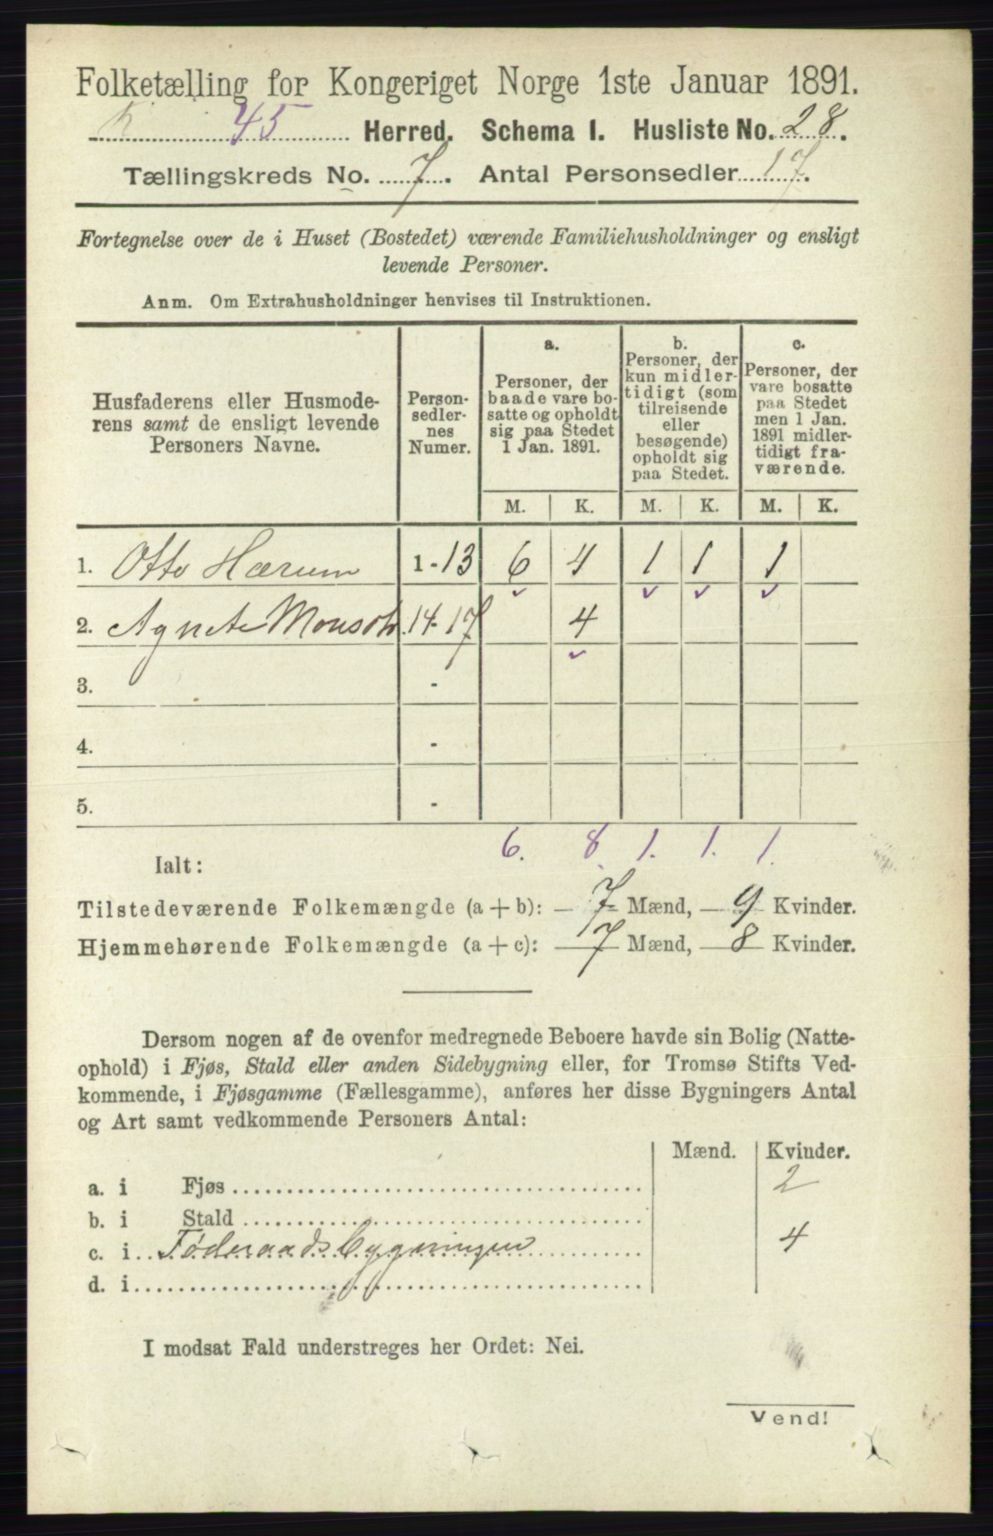 Folketælling for Kongeriget Norge 1ste Januar 1891.
45 Herred. Schema I. Husliste No. 28.
Tællingskreds No. 7. Antal Personsedler 17.
Fortegnelse over de i Huset (Bostedet) værende Familiehusholdninger og ensligt
levende Personer.
Anm. Om Extrahusholdninger henvises til Instruktionen.
Husfaderens eller Husmode-
rens samt de ensligt levende
Personers Navne.
Person-
sedler-
nes
Numer.
a.
Personer, der
baade vare bo-
satte og opholdt
sig paa Stedet
1 Jan. 1891.
b.
Personer, der
kun midler-
tidigt (som
tilreisende
eller
besøgende)
opholdt sig
paa Stedet.
c.
Personer, der
vare bosatte
paa Stedet
men 1 Jan.
1891 midler-
tidigt fra-
værende.
M. K. M. K. M. K.
1. Otto Hærum 1-13 6 4 1 1 1
2. Agnete Monsdtr 14-17 4
3. -
4. -
5. -
6. 8. 1. 1. 1.
Ialt:
Tilstedeværende Folkemængde (a + b): — 7 Mænd, — 9 Kvinder.
Hjemmehørende Folkemængde (a + c): — 7 Mænd, — 8 Kvinder.
Dersom nogen af de ovenfor medregnede Beboere havde sin Bolig (Natte-
ophold) i Fjøs, Stald eller anden Sidebygning eller, for Tromsø Stifts Ved-
kommende, i Fjøsgamme (Fællesgamme), anføres her disse Bygningers Antal
og Art samt vedkommende Personers Antal:
Mænd. Kvinder.
a. i Fjøs 2
b. i Stald
c. i Føderaadsbygningen 4
d. i
I modsat Fald understreges her Ordet: Nei.
Vend!